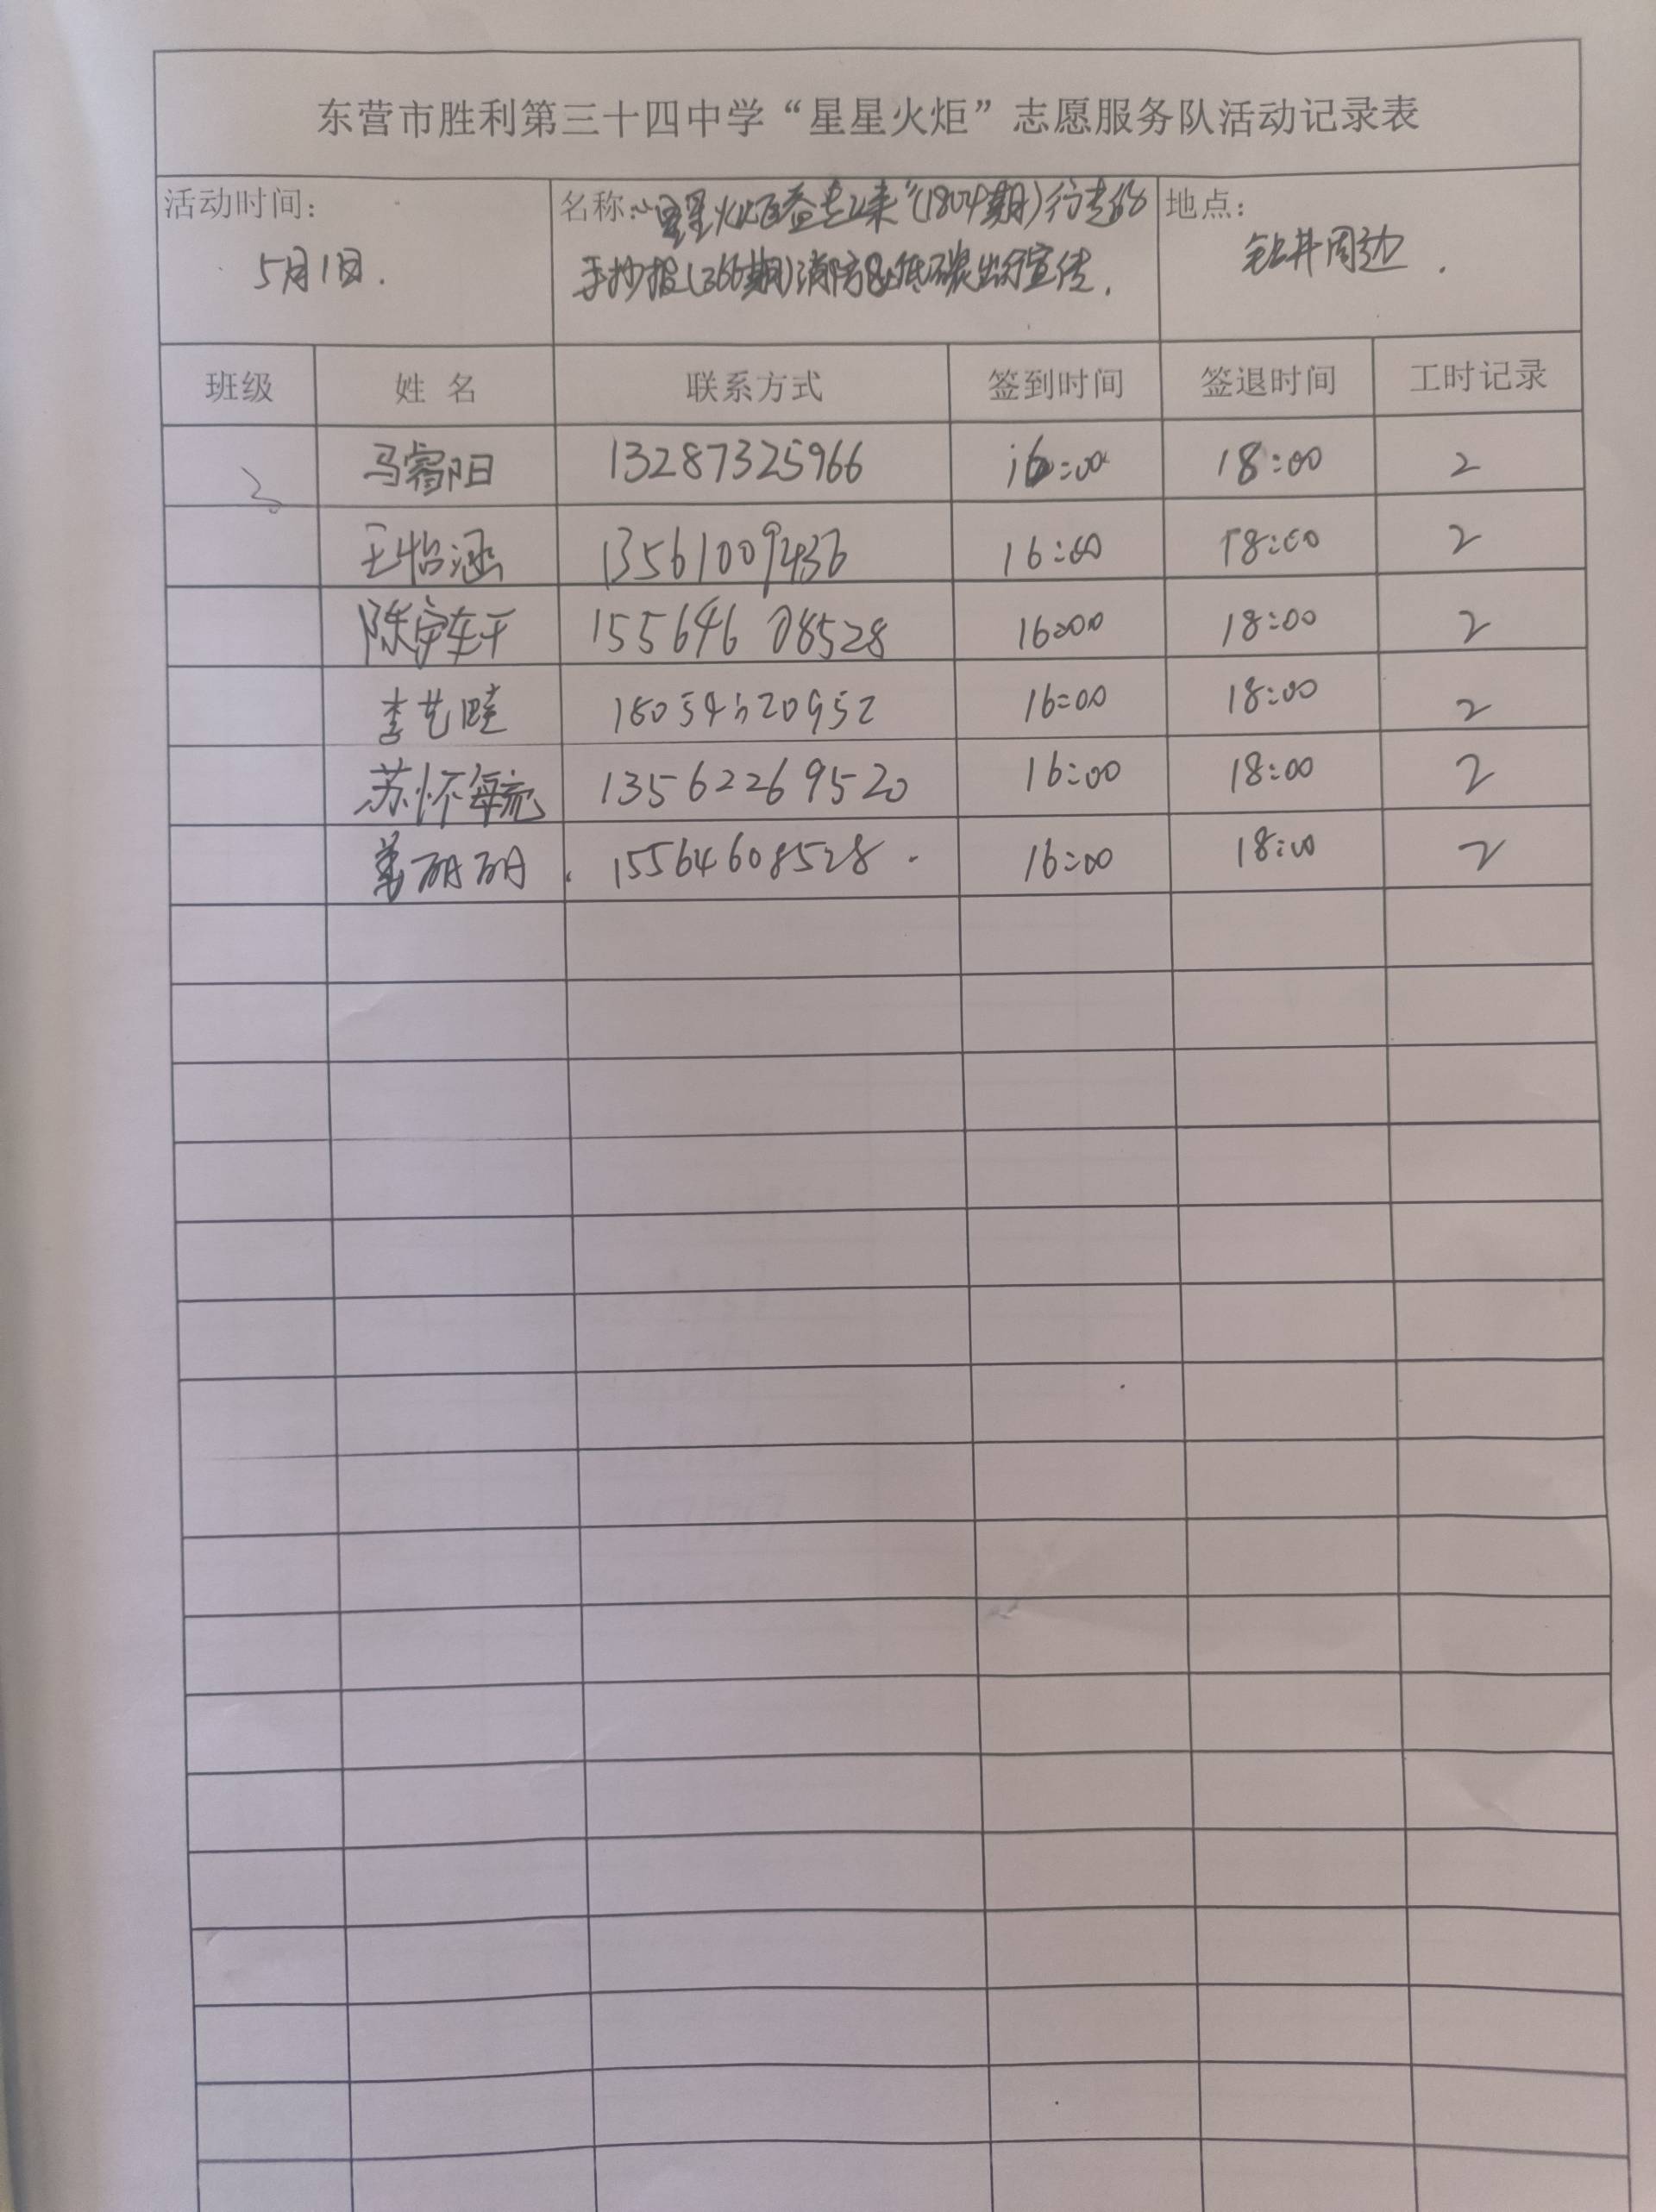 东营市胜利第三十四中学“星星火炬”志愿服务队活动记录表
活动时间： 名称：“星星火炬益起来”(1804期)行走的 地点：
5月1日. 手抄报(366期)消防&低碳出行宣传. 钻井周边.
班级 姓 名 联系方式 签到时间 签退时间 工时记录
马睿阳 13287325966 16:00 18:00 2
王怡涵 13561009436 16:00 18:00 2
陈宇轩 15564608528 16:00 18:00 2
李艺 18054620952 16:00 18:00 2
苏怀毓 13562269520 16:00 18:00 2
丽丽 15564608528. 16:00 18:00 2